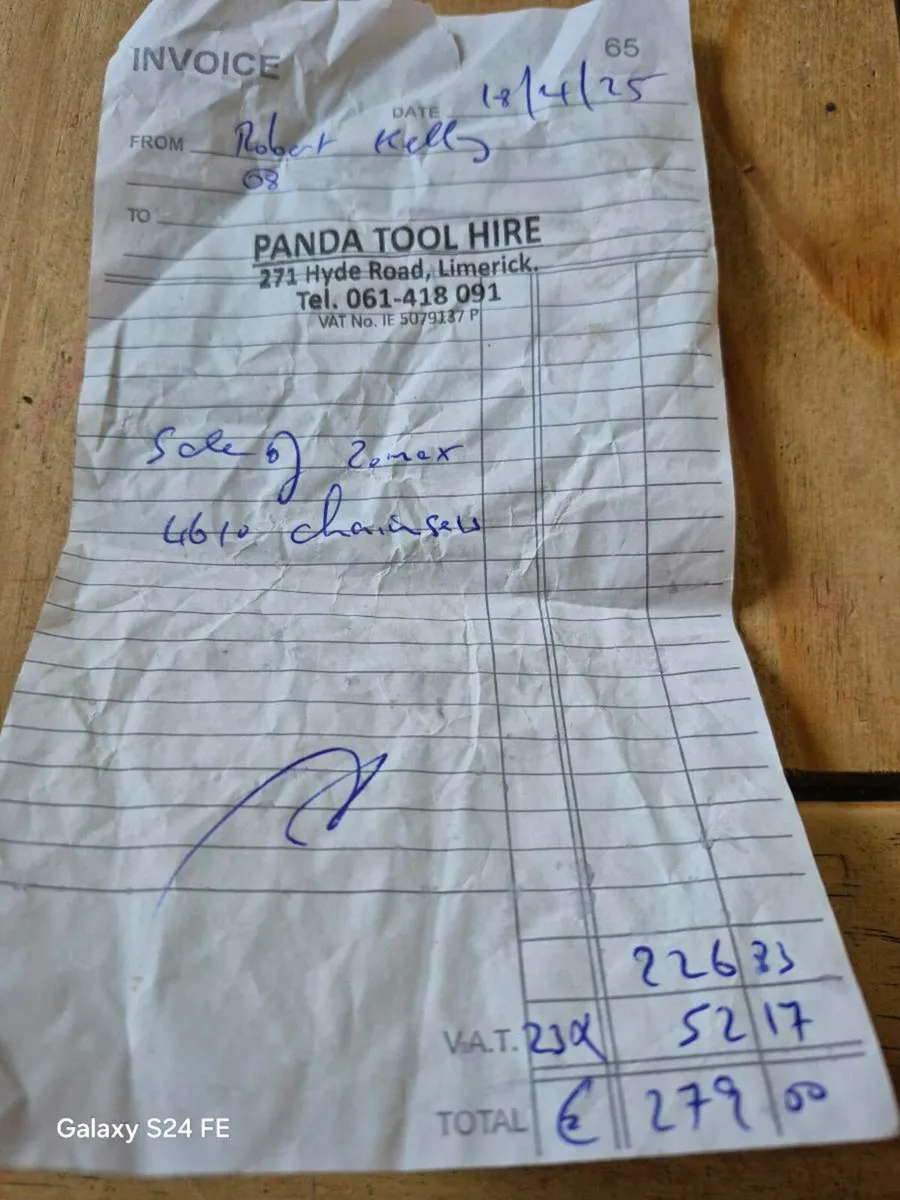 INVOICE 65
DATE 18/4/25
FROM Robert Kelly
08
TO
PANDA TOOL HIRE
271 Hyde Road, Limerick.
Tel. 061-418 091
VAT No. IE 5079137 P
Sale of Zomax
4610 chainsaw
226 83
V.A.T. 23% 52 17
TOTAL € 279 00
Galaxy S24 FE